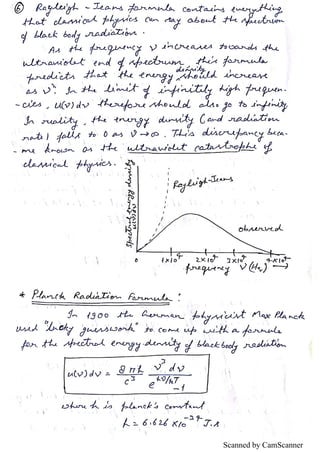 ⑥ Rayleigh - Jeans formula contains everything
that classical physics can say about the spectrum
of black body radiation.
As the frequency ν increases towards the
ultraviolet end of spectrum, this formula
predicts that the energy density should increase
as ν². In the limit of infinitely high frequen-
-cies, u(ν)dν therefore should also go to infinity.
In reality, the energy density (and radiation
rate) falls to 0 as ν→∞. This discrepancy beca-
-me known as the ultraviolet catastrophe of
classical physics.
Rayleigh-Jeans
observed
Spectral Energy density
u(ν)dν
0 1×10⁴ 2×10⁴ 3×10⁴ 4×10⁴
frequency ν (Hz) →
* Planck Radiation Formula:
In 1900 the German physicist Max Planck
used "lucky guesswork" to come up with a formula
for the spectral energy density of blackbody radiation
u(ν)dν = 8πh/c³ ν³dν/e^hν/kT −1
where h is planck's constant
h = 6.626 ×10⁻³⁴ J.s
Scanned by CamScanner